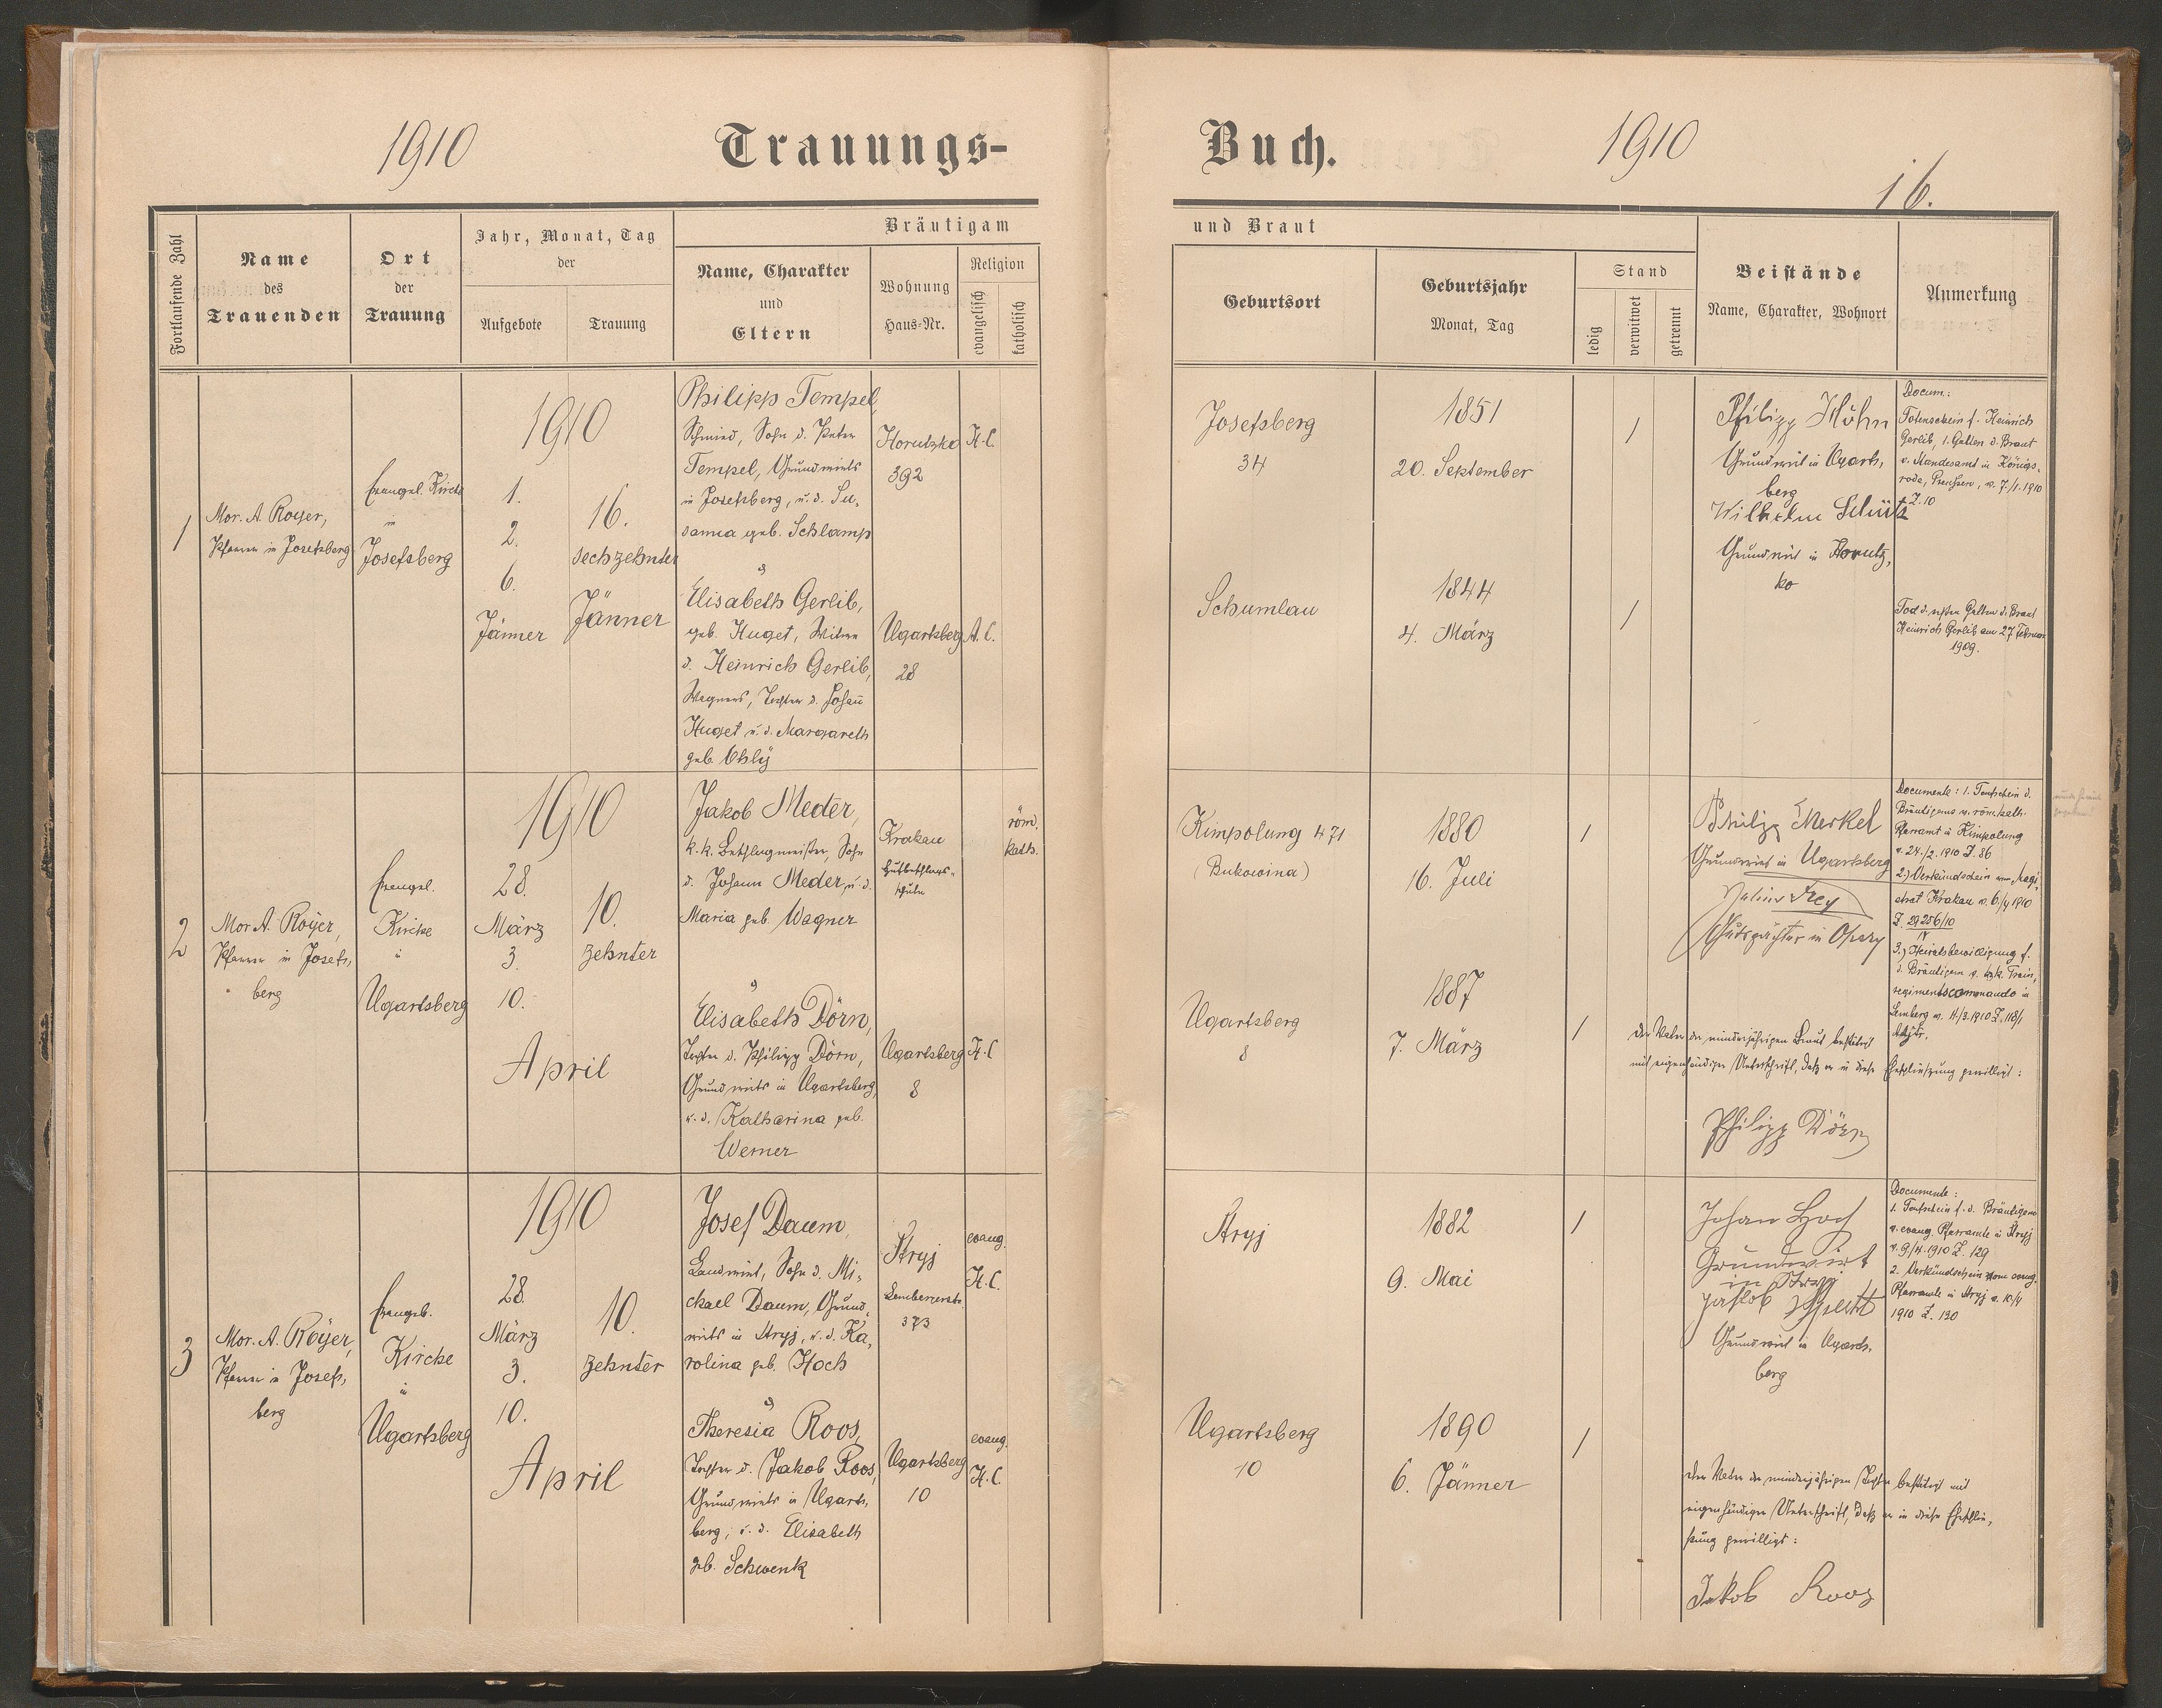 1910
Trauungs-
Buch.
1910
16.
Fortlaufende Zahl
Name
des
Trauenden
Ort
der
Trauung
Jahr, Monat, Tag
der
Aufgebote
Trauung
Bräutigam
Name, Charakter
und
Eltern
Wohnung
Haus-Nr.
Religion
evangelisch
katholisch
und Braut
Geburtsort
Geburtsjahr
Monat, Tag
Stand
ledig
verwitwet
getrennt
Beistände
Name, Charakter, Wohnort
Anmerkung
1
Mor. A. Royer,
Pfarrer in Josefsberg
Evangel. Kirche
in
Josefsberg
1910
1.
2.
6.
Jänner
16.
sechzehnter
Jänner
Philipp Tempel,
Schmied, Sohn d. Peter
Tempel, Grundwirts
in Josefsberg, u. d. Su-
sanna geb. Schlamp
&
Elisabeth Gerlib,
geb. Huget, Witwe
d. Heinrich Gerlib,
Wagners, Tochter d. Johann
Huget u. d. Margareth
geb. Ohly
Horutzko
392
Ugartsberg
28
H. C.
A. C.
Josefsberg
34
Schumlau
1851
20. September
1844
4. März
/
/
Philipp Höhn
Grundwirt in Ugarts-
berg
Wilhelm Schütz
Grundwirt in Horutz-
ko
Docum:
Totenschein f. Heinrich
Gerlib, 1. Gatten d. Braut
v. Standesamt in Königs-
rode, Preußen, v. 7./1. 1910
Z. 10
Tod d. ersten Gatten d. Braut
Heinrich Gerlib am 27 Februar
1909.
2
Mor A. Royer,
Pfarrer in Josefs-
berg
Evangel.
Kirche
in
Ugartsberg
1910
28.
März
3.
10.
10.
zehnter
April
Jakob Meder,
k. k. Beschlagmeister, Sohn
d. Johann Meder, u. d.
Maria geb Wagner
&
Elisabeth Dörn,
Tochter d. Philipp Dörn,
Grundwirts in Ugartsberg,
u. d. Katharina geb.
Werner
Krakau
Hufbeschlags-
schule
Ugartsberg
8
röm.
kath.
H. C
Kimpolung 471
(Bukowina)
Ugartsberg
8
1880
16. Juli
1887
7. März
/
/
Philipp Merkel
Grundwirt in Ugartsberg
Julius Frey
Gutspächter in Opary
Documente: 1. Taufschein d.
Bräutigams v. röm. kath.
Pfarramt in Kimpolung
v. 24./2. 1910 Z. 86
2.) Verkündschein vom Magi-
strat Krakau v. 6./4 1910
Z. 29256/10
IV
3.) Heiratsbewilligung f.
d. Bräutigam v. k. k. Train-
regimentscommando in
Lemberg v. 11./3. 1910 Z. 118/1
Adjtr.
Der Vater der minderjährigen Braut bestätigt
mit eigenhändiger Unterschrift, daß er in diese Eheschließung gewilligt:
Philipp Dörn
3
Mor. A. Royer,
Pfarrer in Josefs-
berg
Evangel.
Kirche
in
Ugartsberg
1910
28.
März
3.
10.
10.
zehnter
April
Josef Daum,
Landwirt, Sohn d. Mi-
chael Daum, Grund-
wirts in Stryj, u. d. Ka-
rolina geb. Hoch
&
Theresia Roos,
Tochter d. Jakob Roos,
Grundwirts in Ugarts-
berg, u. d. Elisabeth
geb. Schwenk
Stryj
373
Ugartsberg
10
evang.
H. C.
evang.
H. C.
Stryj
Ugartsberg
10
1882
9. Mai
1890
6. Jänner
/
/
Johan Hoch
Grundwirt
in Stryj
Jakob
Grundwirt in Ugarts-
berg
Documente:
1. Taufschein f. d. Bräutigam
v. evang. Pfarramte in Stryj
v. 9/4. 1910 Z. 129
2. Verkündschein vom evang.
Pfarramte in Stryj v. 10/4
1910 Z. 130
Der Vater der minderjährigen Tochter bestätigt mit
eigenhändiger Unterschrift, daß er in diese Eheschlie-
ßung gewilligt:
Jakob Roos